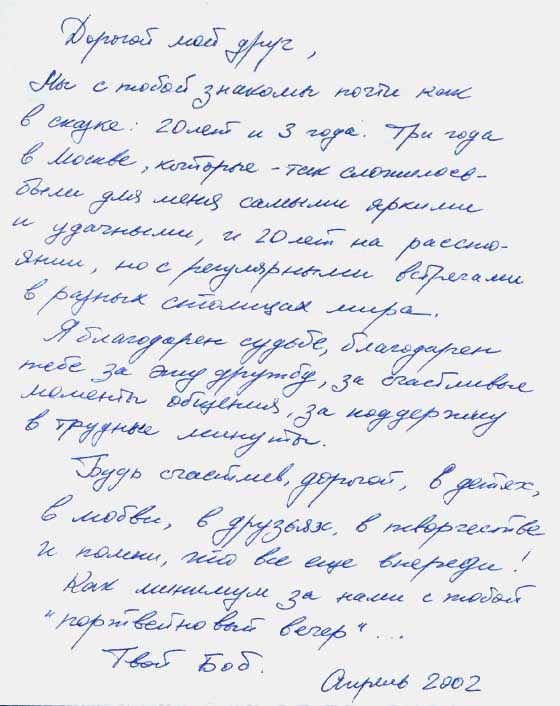 Дорогой мой друг,
Мы с тобой знакомы почти как
в сказке: 20 лет и 3 года. Три года
в Москве, которые - так сложилось -
были для меня самыми яркими
и удачными, и 20 лет на рассто-
янии, но с регулярными встречами
в разных столицах мира.
Я благодарен судьбе, благодарен
тебе за эту дружбу, за счастливые
моменты общения, за поддержку
в трудные минуты.
Будь счастлив, дорогой, в детях,
в любви, в друзьях, в творчестве
и помни, что все еще впереди!
Как минимум за нами с тобой
"портвейновый вечер"...
Твой Боб.
Апрель 2002